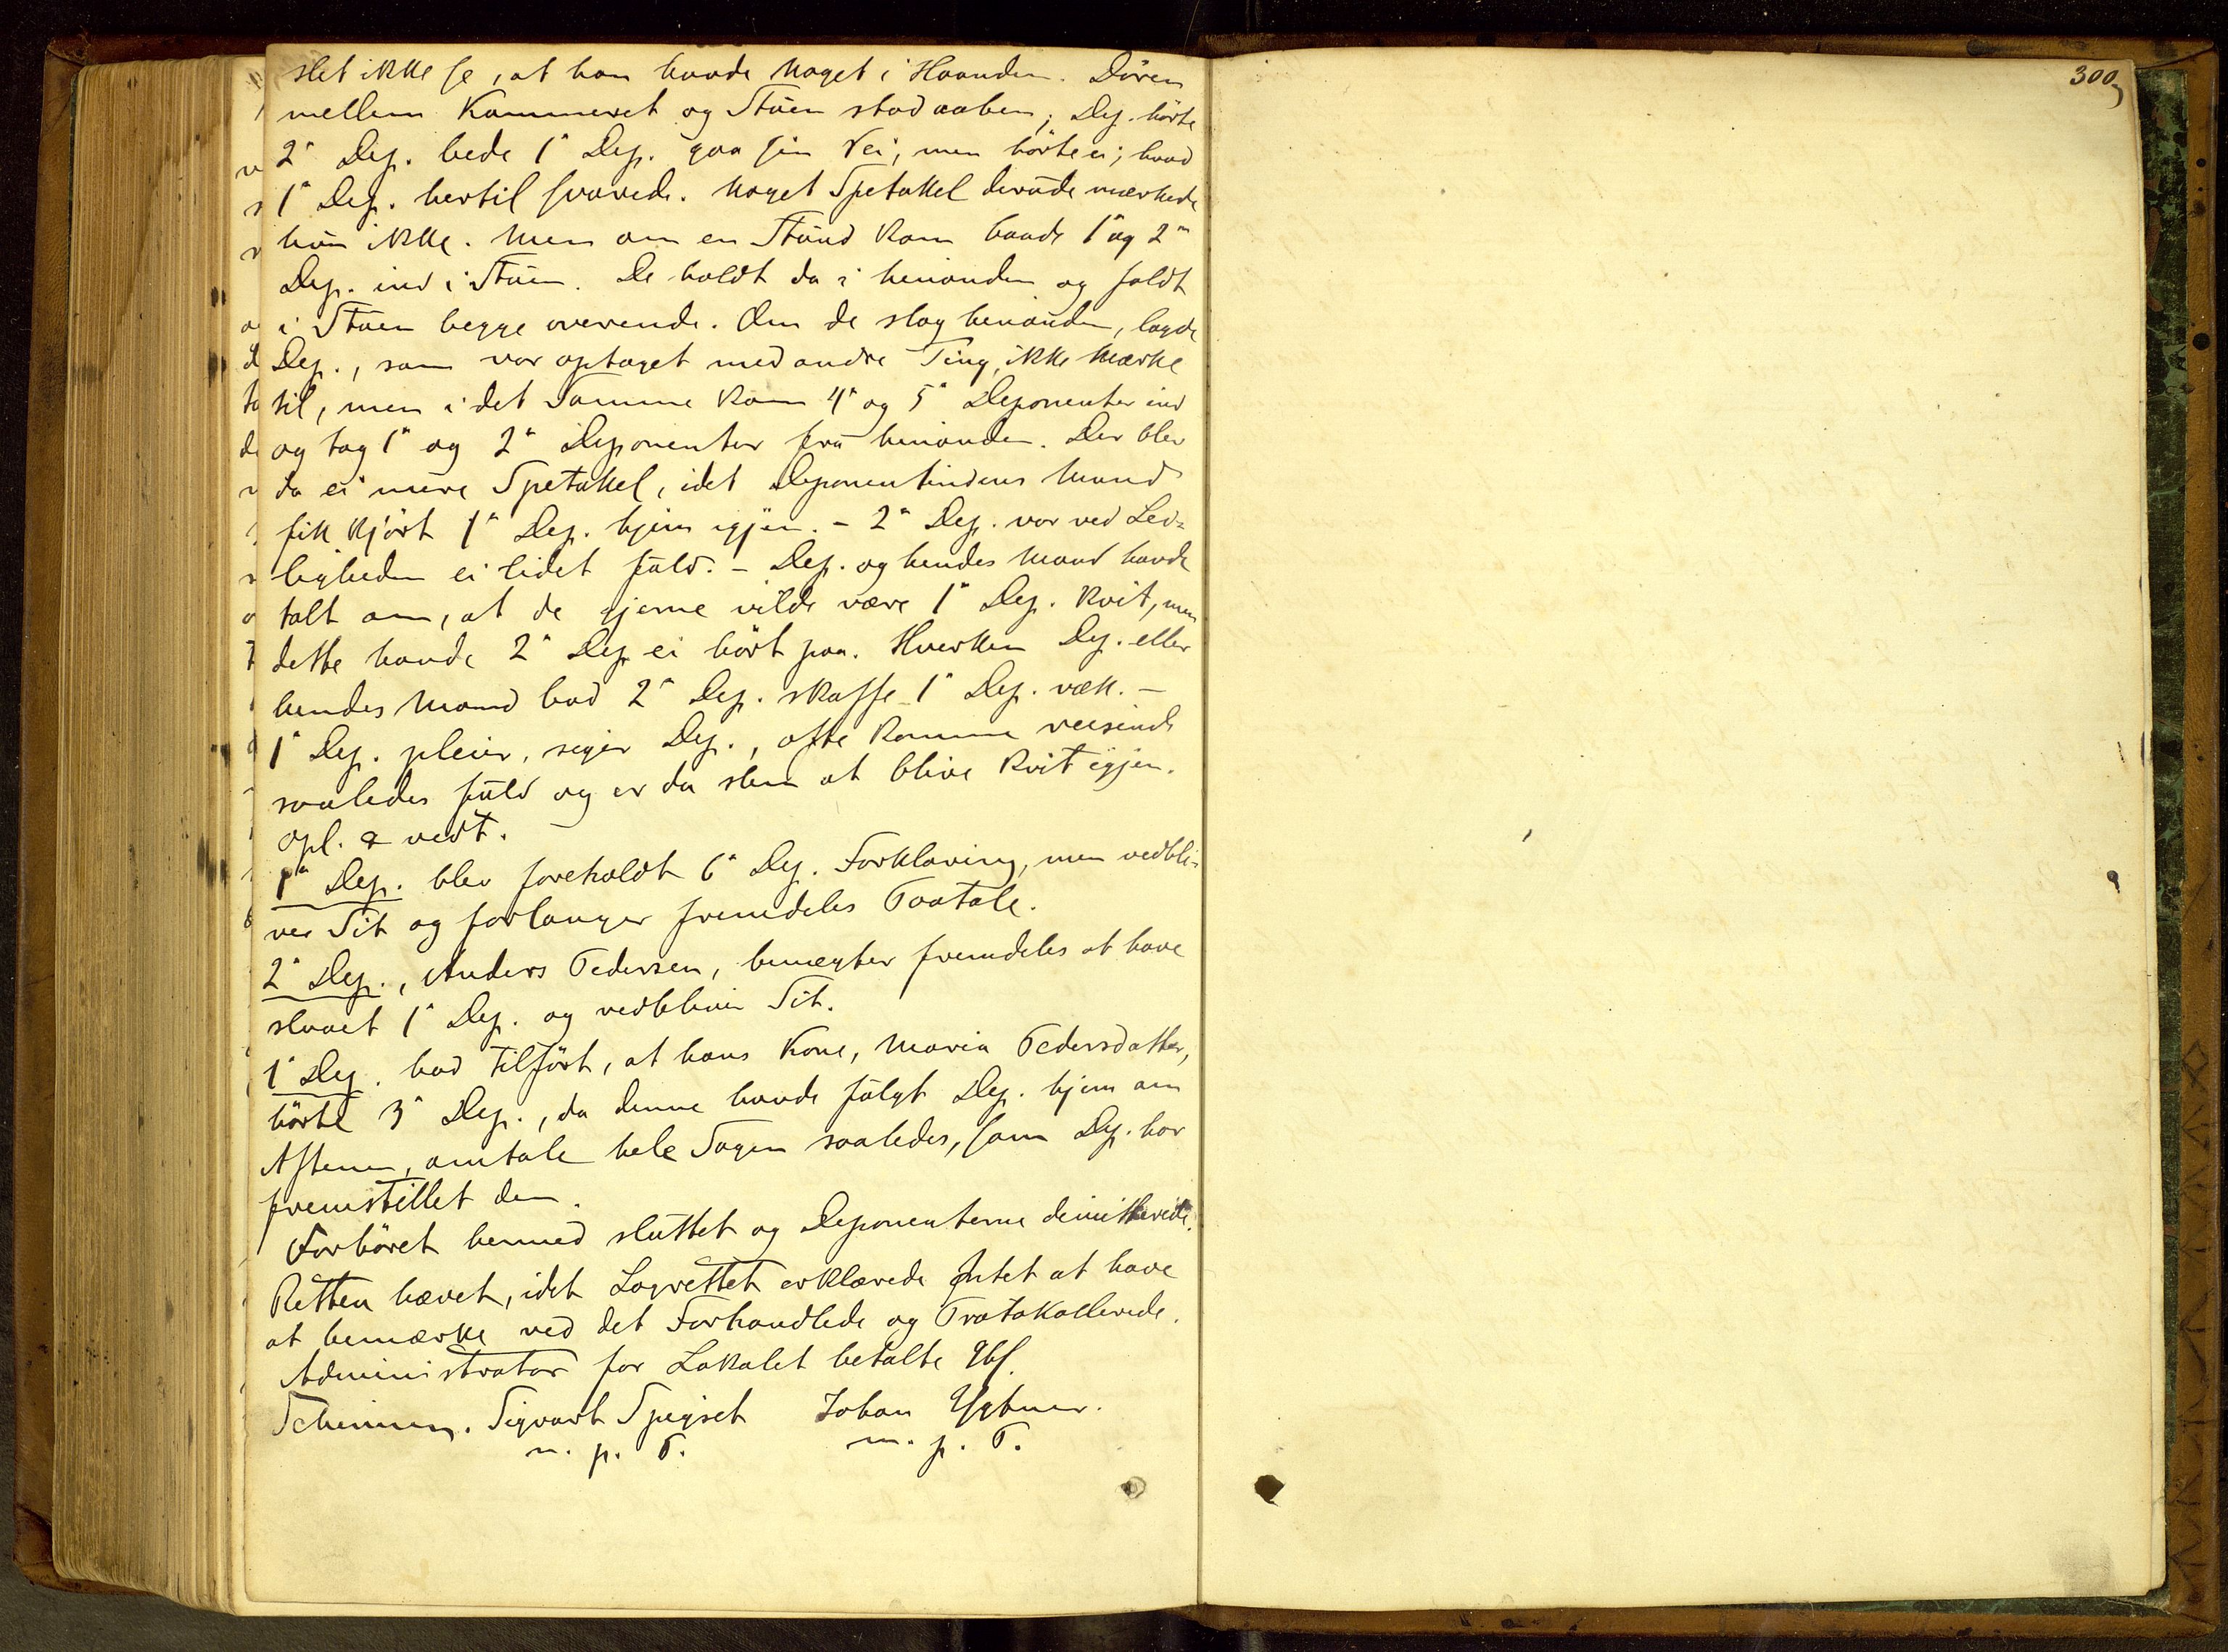 slet ikke se, at han havde Noget i Haanden. Døren
mellem Kammeret og Stuen stod aaben; Dep. hørte
2ª Dep. bede 1ª Dep. gaa sin Vei, men hørte ei, hvad
1ª Dep. hertil svarede. Noget Spetakkel derude mærkede
hun ikke. Men om en Stund kom baade 1ª og 2ª
Dep. ind i Stuen. De holdt da i hinanden og faldt
i Stuen begge overende. Om de slog hinanden, lagde
Dep., som var optaget med andre Ting, ikke Mærke
til, men i det Samme kom 4ª og 5ª Deponenter ind
og tog 1ª og 2ª Deponenter fra hinanden. Der blev
da ei mere Spetakkel, idet Deponentindens Mand
fik kjørt 1ª Dep. hjem igjen. - 2ª Dep. var ved Lei-
ligheden ei lidet fuld. - Dep. og hendes Mand havde
talt om, at de gjerne vilde være 1ª Dep. kvit, men
dette havde 2ª Dep. ei hørt paa. Hverken Dep. eller
hendes Mand bad 2ª Dep. skaffe 1ª Dep. væk. -
1ª Dep. pleier, siger Dep., ofte komme reisende
saaledes fuld og er da slem at blive kvit igjen.
Opl. & vedt.
1ª Dep. blev foreholdt 6ª Dep. Forklaring, men vedbli-
ver Sit og forlanger fremdeles Paatale.
2ª Dep., Anders Pedersen, benægter fremdeles at have
slaaet 1ª Dep. og vedbliver Sit.
1ª Dep. bad tilført, at hans Kone, Maria Pedersdatter,
hørte 3ª Dep., da denne havde fulgt Dep. hjem om
Aftenen, omtale hele Sagen saaledes, som Dep. har
fremstillet den.
Forhøret hermed sluttet og Deponenterne demitterede.
Retten hævet, idet Lagrettet erklærede Intet at have
at bemærke ved det Forhandlede og Protokollerede.
Administrator for Lokalet betalte
Sigvart Johan
m. p. P. m. p. P.
300